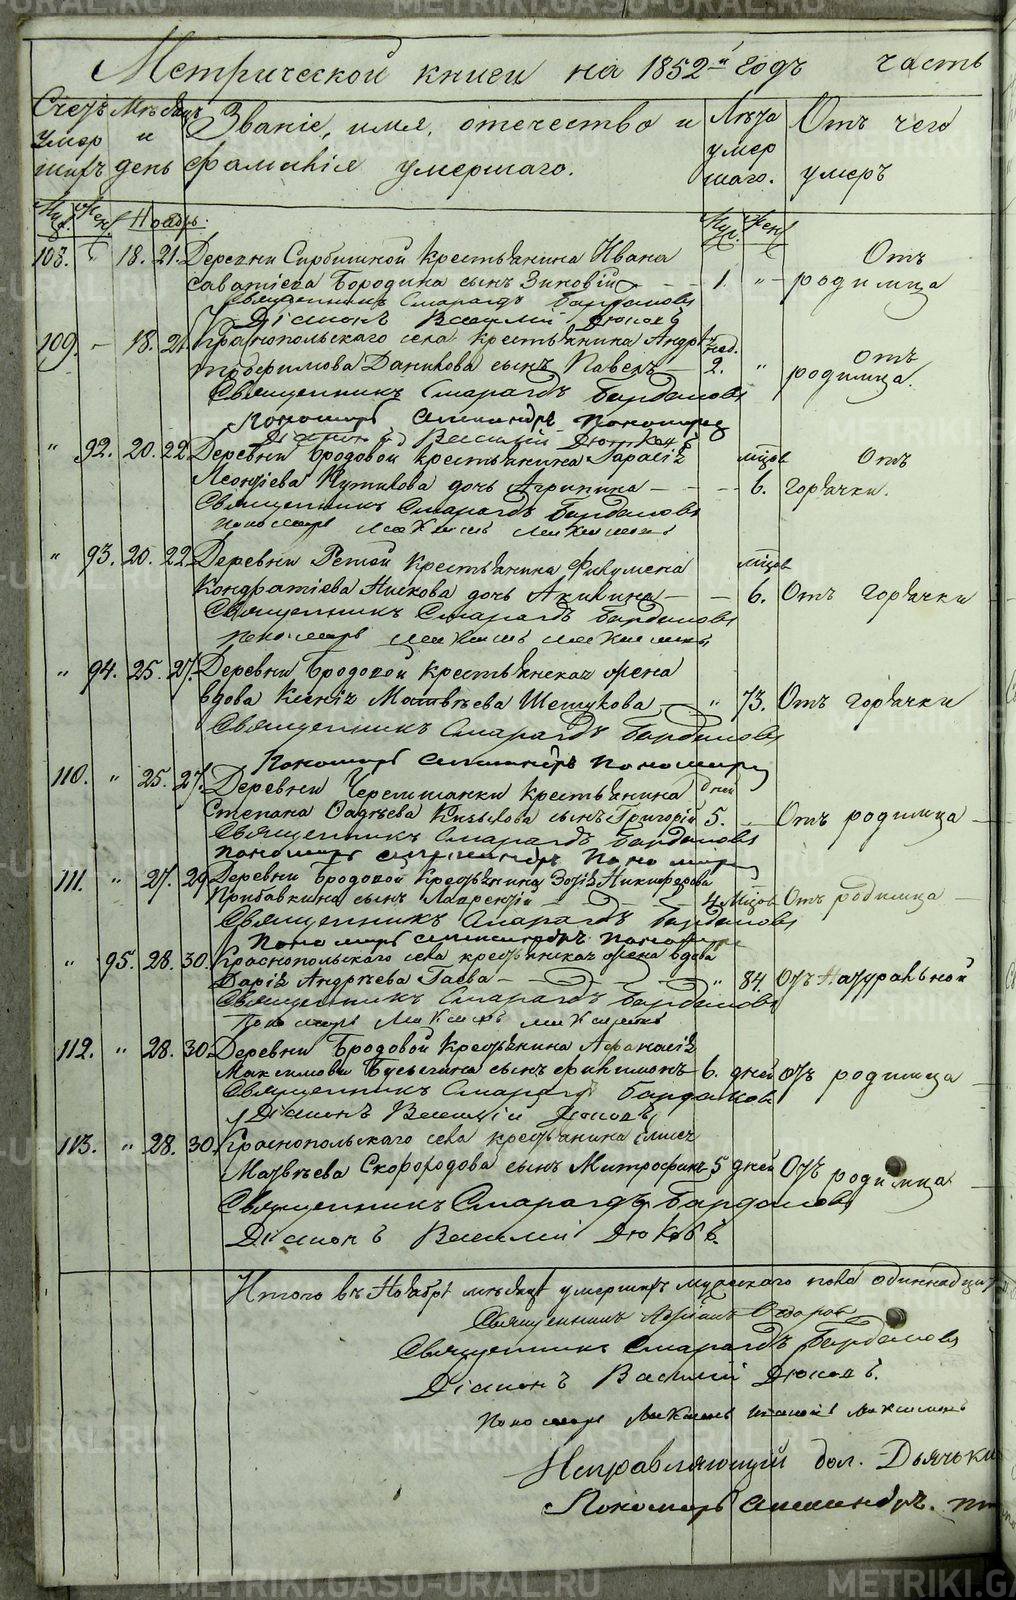 Метрической книги на 1852й годъ часть
Счетъ умершихъ
Мѣсяцъ и день
Званіе, имя, отечество и фамилія умершаго.
Лѣта умершаго.
Отъ чего умеръ
Муж. Жен. Ноябрь. Муж. Жен.
108. 18. 21. Деревни Сарбишной крестьянина Ивана Отъ
Саватіева Бородина сынъ Зиновій 1. " родимца
Священникъ Смарагдъ Бардаковъ
Діаконъ Василій Дюковъ
109. — 18. 21. Краснопольскаго села крестьянина Андрея нед. Отъ
Трофимова Данилова сынъ Павелъ — 2. " родимца.
Священникъ Смарагдъ Бардаковъ
Пономарь Александръ Пономаревъ
Діаконъ Василій Дюковъ
" 92. 20. 22. Деревни Бродовой крестьянина Гарасія мѣсцов Отъ
Леонтіева Путилова дочь Агрипина — — — 6. горячки.
Священникъ Смарагдъ Бардаковъ
Пономарь
" 93. 20. 22. Деревни крестьянина Филумена мѣсцов
Кондратіева дочь Акилина — — 6. Отъ горячки
Священникъ Смарагдъ Бардаковъ
Пономарь
" 94. 25. 27. Деревни Бродовой крестьянская жена
вдова Ксенія Матвѣева — " 73. Отъ горячки
Священникъ Смарагдъ Бардаковъ
Пономарь Александръ Пономаревъ
110. " 25. 27. Деревни Черемшанки крестьянина дней
Степана Фадѣева сынъ Григорій 5. — Отъ родимца —
Священникъ Смарагдъ Бардаковъ
Пономарь Александръ Пономаревъ
111. " 27. 29. Деревни Бродовой крестьянина Никифорова
сынъ Лаврентій — 4 мѣсцов Отъ родимца —
Священникъ Смарагдъ Бардаковъ
Пономарь Александръ Пономаревъ
" 95. 28. 30. Краснопольскаго села крестьянская жена вдова
Дарія Андрѣева Гаева — — — " 84. Отъ натуральной
Священникъ Смарагдъ Бардаковъ
Пономарь
112. " 28. 30. Деревни Бродовой крестьянина Афанасія
Максимова Бусыгина сынъ Филимонъ 6. дней Отъ родимца —
Священникъ Смарагдъ Бардаковъ
Діаконъ Василій Дюковъ
113. " 28. 30. Краснопольскаго села крестьянина
Матвѣева Скороходова сынъ Митрофанъ 5 дней Отъ родимца. —
Священникъ Смарагдъ Бардаковъ
Діаконъ Василій Дюковъ.
Итого въ Ноябрѣ мѣсяцѣ умершихъ мужескаго пола одиннадцат
Священникъ
Священникъ Смарагдъ Бардаковъ
Діаконъ Василій Дюковъ.
Пономарь
Исправляющій дол. Дьячка
Пономарь Александръ.
METRIKI.GASO-URAL.RU